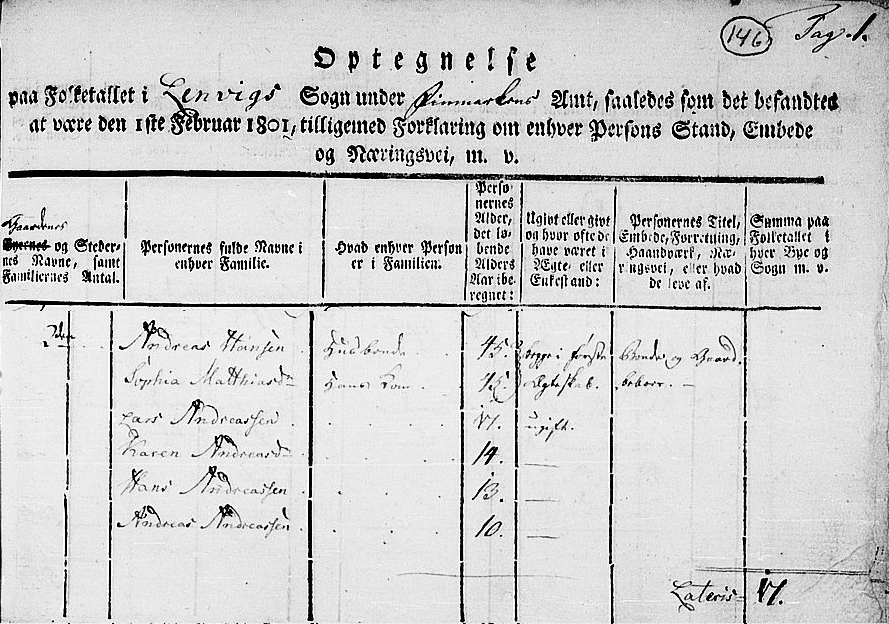 146 Pag. 1.
Optegnelse
paa Folketallet i Lenvigs Sogn under Finmarkens Amt, saaledes som det befandtes
at være den 1ste Februar 1801, tilligemed Forklaring om enhver Persons Stand, Embede
og Næringsvei, m. v.
Gaardenes
Byernes og Steder-
nes Navne, samt
Familiernes Antal.
Personernes fulde Navne i
enhver Familie.
Hvad enhver Person
er i Familien.
Perso-
nernes
Alder,
det lø-
bende
Alders
Aar ibe-
regnet:
Ugivt eller givt
og hvor ofte de
have været i
Ægte- eller
Enkestand:
Personernes Titel,
Embede, Forretning,
Haandværk, Næ-
ringsvei, eller hvad
de leve af.
Summa paa
Folketallet i
hver Bye og
Sogn m. v.
Andreas Hansen Husbonde 45. begge i første Bonde og Gaard-
Sophia Matthiasd. Hans Kone 45. Ægteskab. beboer.
Lars Andreassen 17. ugift.
Karen Andreasd. 14. —
Hans Andreassen 13. —
Andreas Andreassen 10. —
Lateris 17.